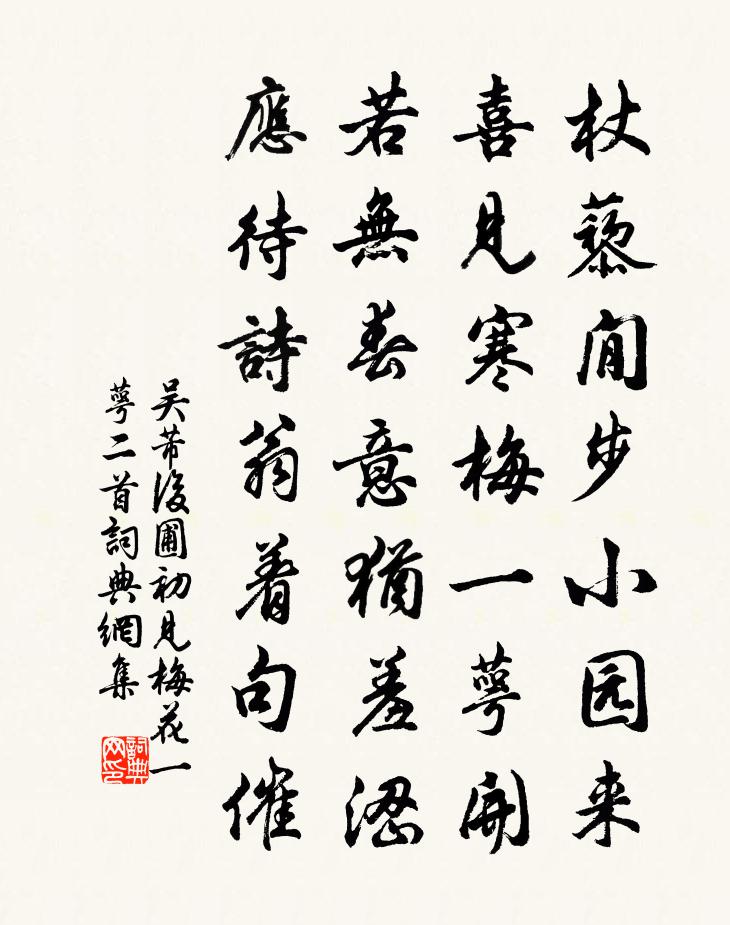 杖藜閒步小园来
喜見寒梅一萼開
若無春意猶羞澀
應待詩翁着句催
吴芾後圃初見梅花一
萼二首詞典網集
詞典网印